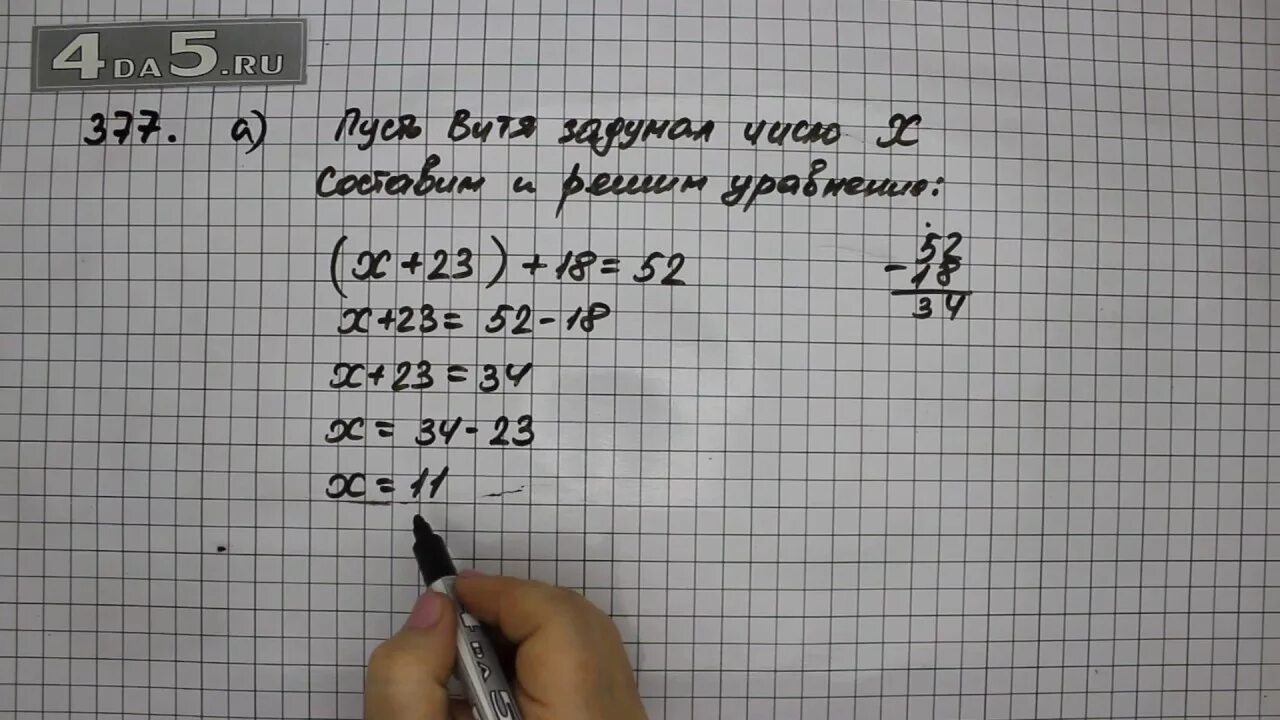 4DA5.RU
377. а) Пусть Витя задумал число x
Составим и решим уравнение:
(x+23)+18=52
x+23=52-18
x+23=34
x=34-23
x=11
52
-18
34
4DA5